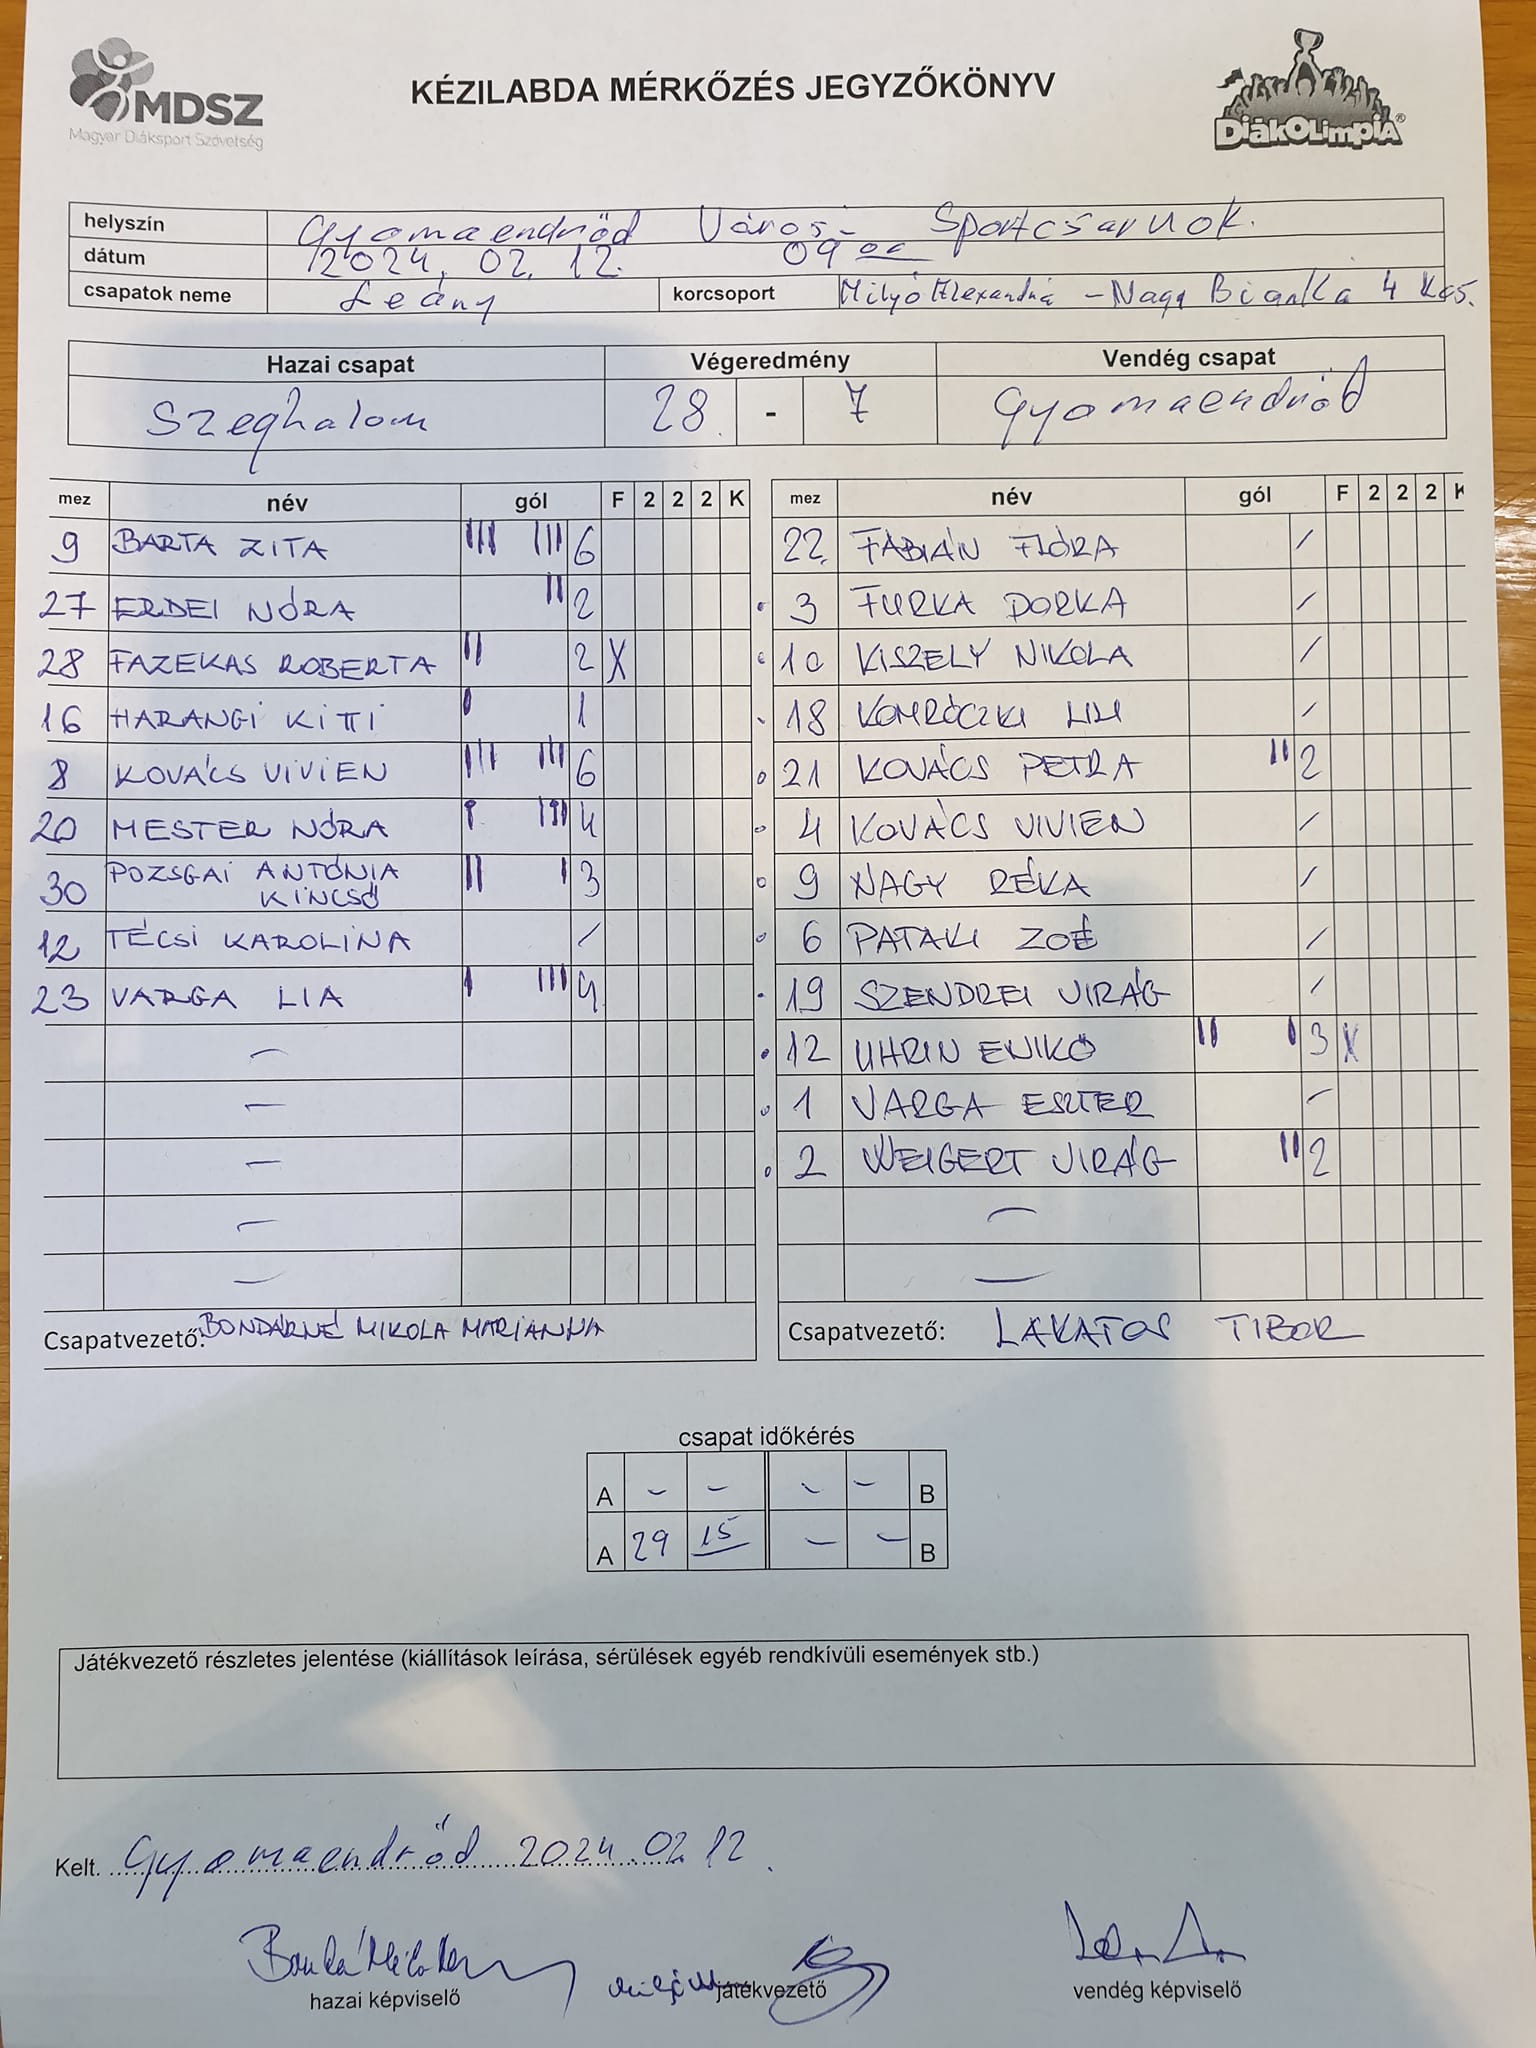 MDSZ
Magyar Diáksport Szövetség
KÉZILABDA MÉRKŐZÉS JEGYZŐKÖNYV
DiákOLimpiA®
helyszín Gyomaendrőd Városi Sportcsarnok.
dátum 2024. 02. 12. 09 00
csapatok neme Leány korcsoport Milyó Alexandra - Nagy Bianka 4 kcs.
Hazai csapat Végeredmény Vendég csapat
Szeghalom 28 - 7 Gyomaendrőd
mez név gól F 2 2 2 K mez név gól F 2 2 2 K
9 BARTA ZITA III III 6 22 FÁBIÁN FLÓRA /
27 ERDEI NÓRA II 2 3 FURKA DORKA /
28 FAZEKAS ROBERTA II 2 X 10 KISZELY NIKOLA /
16 HARANGI KITTI I 1 18 KOMRÓCZKI LILI /
8 KOVÁCS VIVIEN III III 6 21 KOVÁCS PETRA II 2
20 MESTER NÓRA I III 4 4 KOVÁCS VIVIEN /
30 POZSGAI ANTÓNIA KINCSŐ II I 3 9 NAGY RÉKA /
12 TÉCSI KAROLINA / 6 PATAKI ZOÉ /
23 VARGA LIA I III 4 19 SZENDREI VIRÁG /
— 12 UHRIN ENIKŐ II I 3 X
— 1 VARGA ESZTER /
— 2 WEIGERT VIRÁG II 2
— —
— —
Csapatvezető: BONDÁRNÉ MIKOLA MARIANNA Csapatvezető: LAKATOS TIBOR
csapat időkérés
A - - - - B
A 29 15 - - B
Játékvezető részletes jelentése (kiállítások leírása, sérülések egyéb rendkívüli események stb.)
Kelt. Gyomaendrőd 2024.02.12.
hazai képviselő játékvezető vendég képviselő